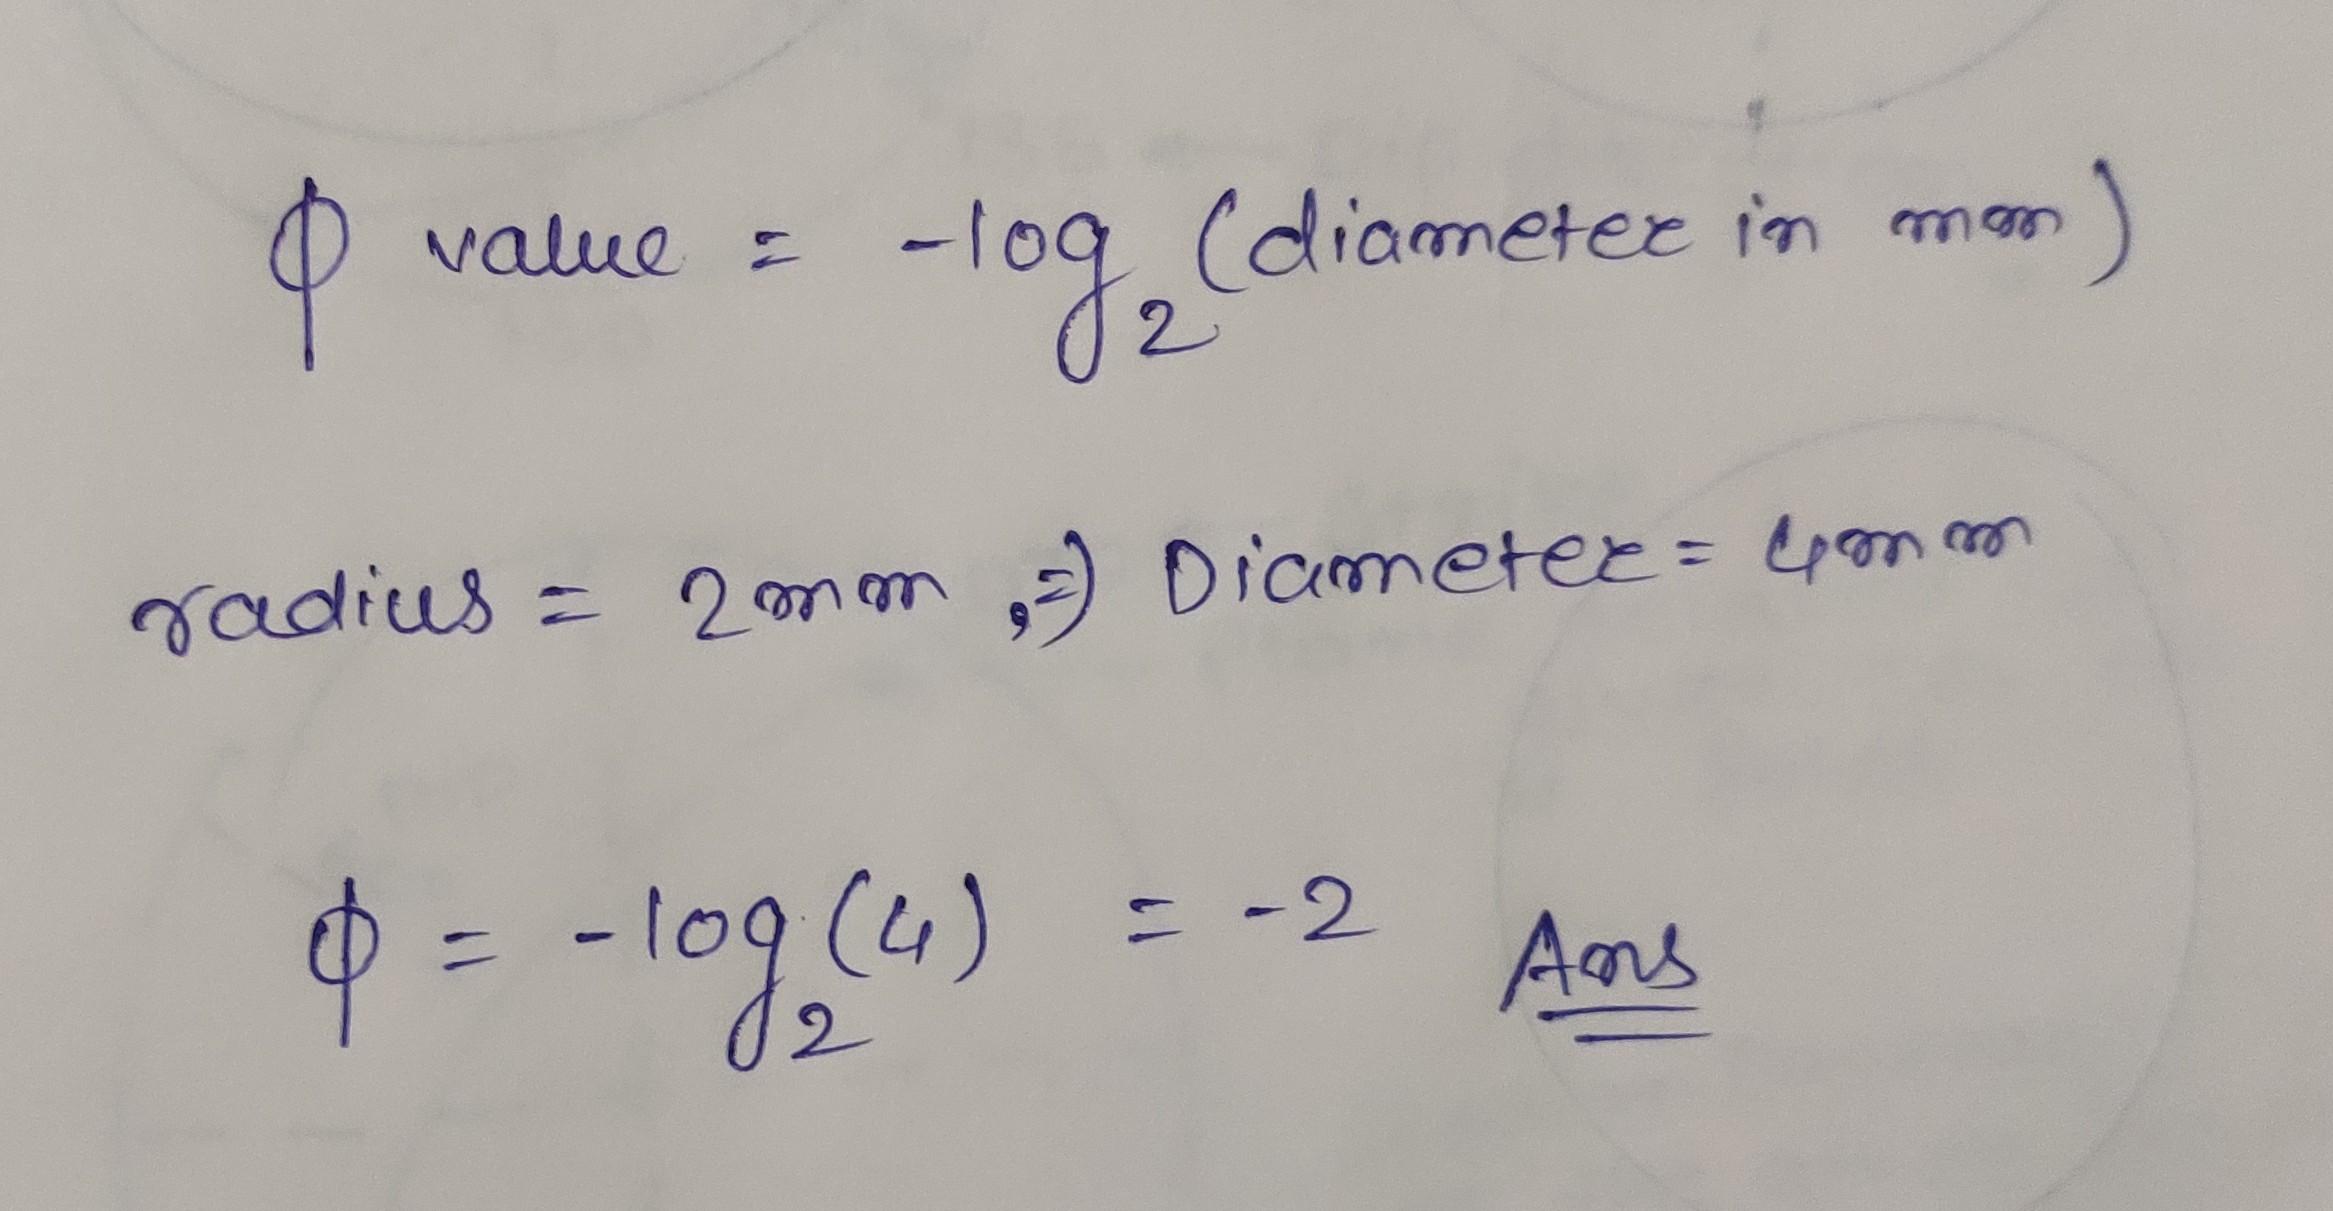 ϕ value = -log₂ (diameter in mm)
radius = 2mm, ⇒ Diameter = 4mm
ϕ = -log₂ (4) = -2 Ans